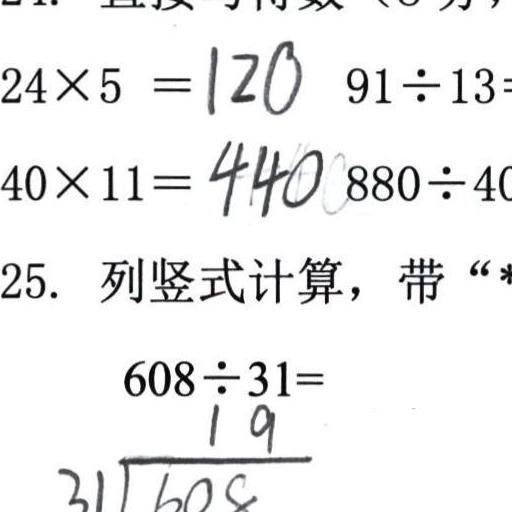 24×5 =120 91÷13=
40×11=440 880÷40
25. 列竖式计算，带“*
608÷31=
19
31 608